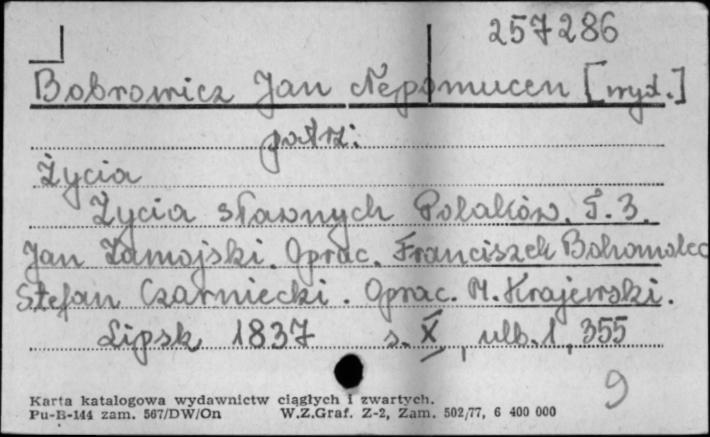 257286
Bobrowicz Jan Nepomucen [wyd.]
patrz:
Życia
Życia sławnych Polaków. T. 3.
Jan Zamojski. Oprac. Franciszek Bohomolec
Stefan Czarniecki. Oprac. M. Krajewski.
Lipsk 1837 s. X, ulb. 1, 355
9
Karta katalogowa wydawnictw ciągłych i zwartych.
Pu-B-144 zam. 567/DW/On W.Z.Graf. Z-2, Zam. 502/77, 6 400 000